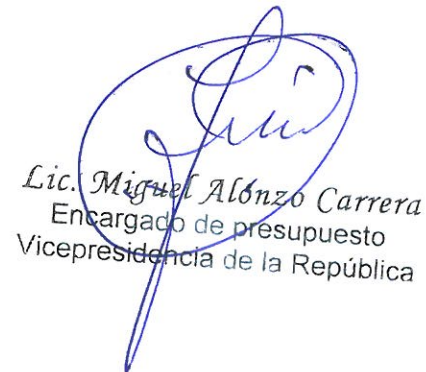 Lic. Miguel Alónzo Carrera
Encargado de presupuesto
Vicepresidencia de la República